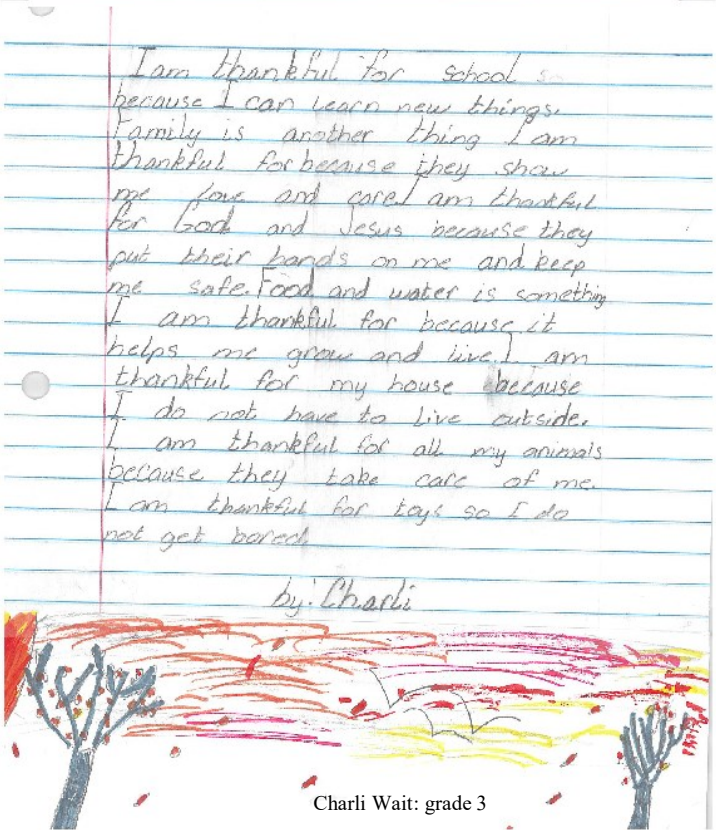 I am thankful for school
because I can learn new things.
Family is another thing I am
thankful for because they show
me love and care. I am thankful
for God and Jesus because they
put their hands on me and keep
me safe. Food and water is something
I am thankful for because it
helps me grow and live. I am
thankful for my house because
I do not have to live outside.
I am thankful for all my animals
because they take care of me.
I am thankful for toys so I do
not get bored.
by: Charli
Charli Wait: grade 3